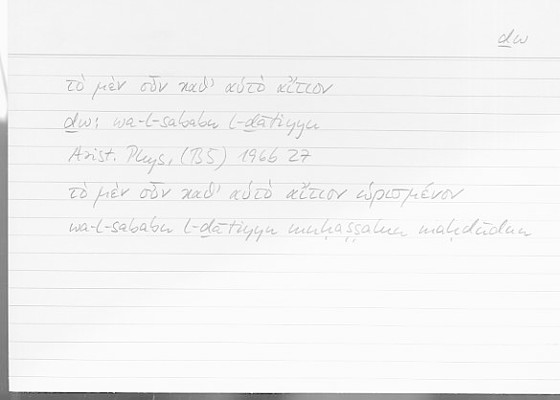 ḏw
τὸ μὲν οὖν καθ' αὑτὸ αἴτιον
ḏw: wa-l-sababu l-ḏātiyyu
Arist. Phys. (B5) 196b 27
τὸ μὲν οὖν καθ' αὑτὸ αἴτιον ὡρισμένον
wa-l-sababu l-ḏātiyyu muḥaṣṣalun maḥdūdun